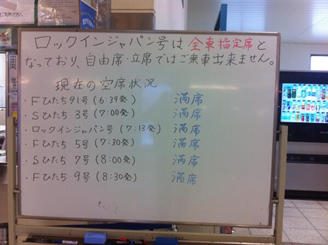 ロックインジャパン号は全車指定席と
なっており、自由席・立席ではご乗車出来ません。
現在の空席状況
・Fひたち91号(6:39発) 満席
・Sひたち3号(7:00発) 満席
・ロックインジャパン号(7:13発) 満席
・Fひたち5号(7:30発) 満席
・Sひたち7号(8:00発) 満席
・Fひたち9号(8:30発) 満席